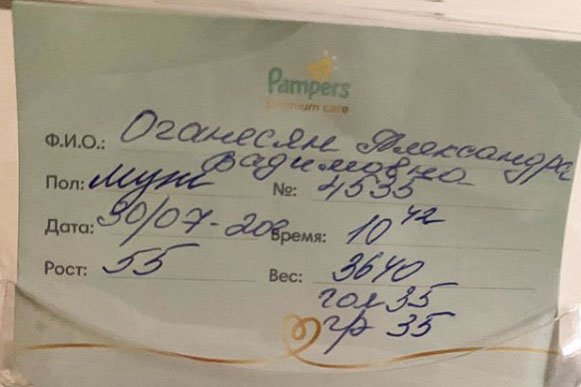 Pampers
premium care
Ф.И.О.: Оганесян Александра
Вадимовна
Пол: муж №: 4535
Дата: 30/07-20г Время: 10 42
Рост: 55 Вес: 3640
гол 35
гр 35